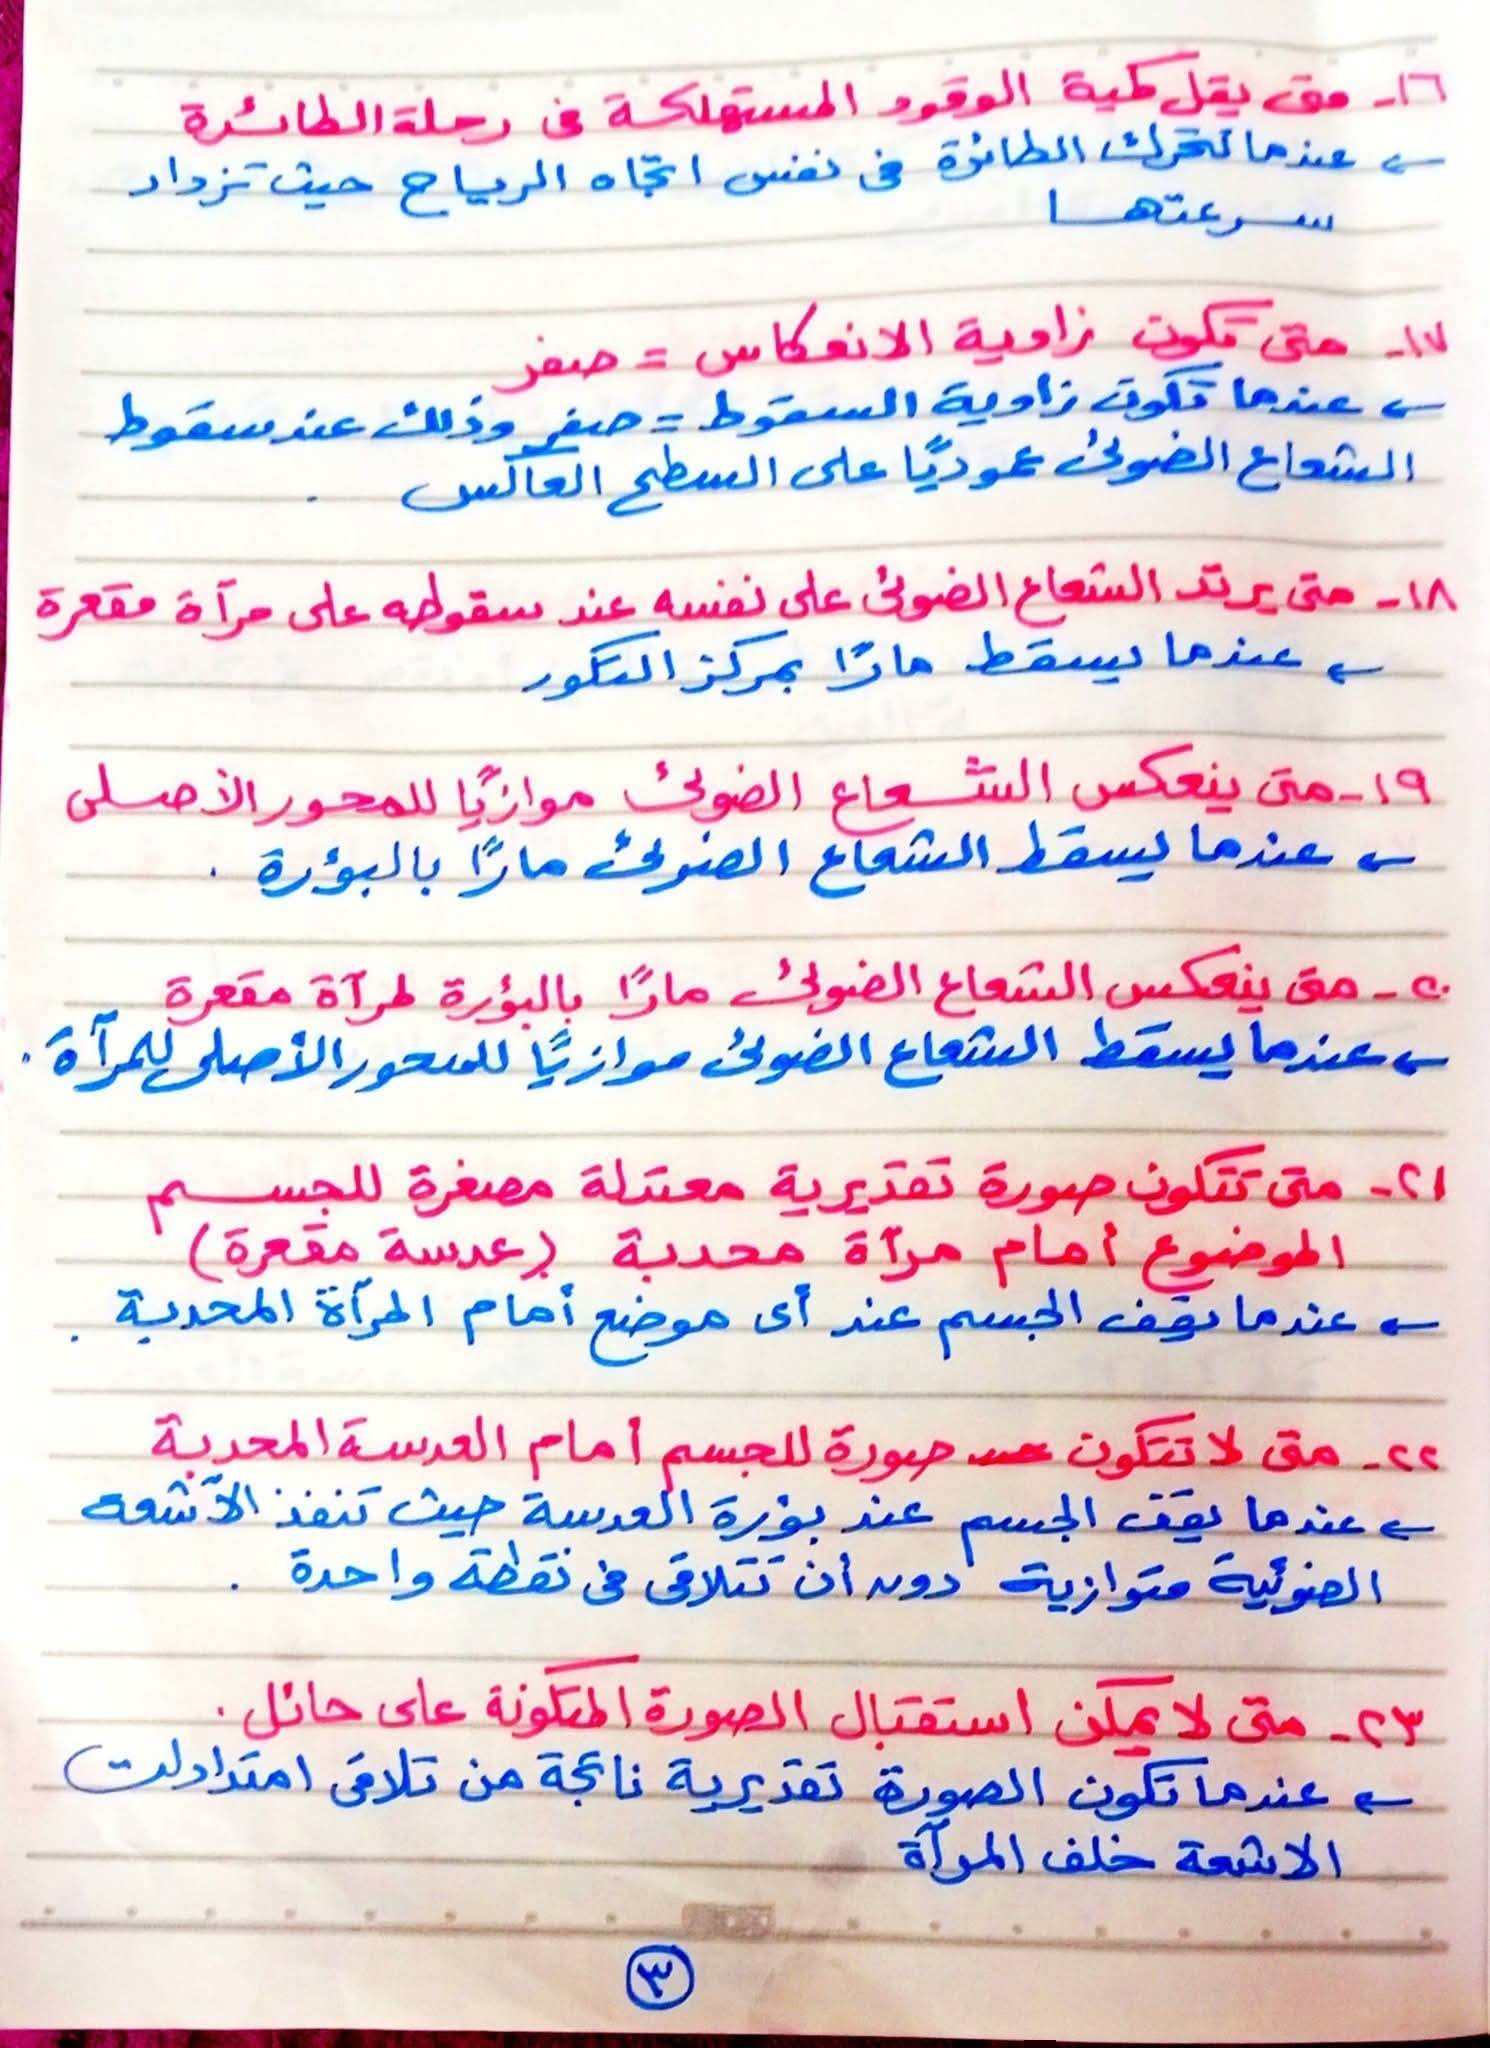 ١٦- متى يقل كمية الوقود المستهلكة فى رحلة الطائرة
← عندما تتحرك الطائرة فى نفس اتجاه الرياح حيث تزداد
سرعتها
١٧- متى تكون زاوية الانعكاس = صفر
← عندما تكون زاوية السقوط = صفر وذلك عند سقوط
الشعاع الضوئى عموديًا على السطح العاكس .
١٨- متى يرتد الشعاع الضوئى على نفسه عند سقوطه على مرآة مقعرة
← عندما يسقط مارًا بمركز التكور
١٩- متى ينعكس الشعاع الضوئى موازيًا للمحور الأصلى
← عندما يسقط الشعاع الضوئى مارًا بالبؤرة .
٢٠- متى ينعكس الشعاع الضوئى مارًا بالبؤرة لمرآة مقعرة
← عندما يسقط الشعاع الضوئى موازيًا للمحور الأصلى للمرآة .
٢١- متى تتكون صورة تقديرية معتدلة مصغرة للجسم
الموضوع أمام مرآة محدبة (عدسة مقعرة)
← عندما يقف الجسم عند أى موضع أمام المرآة المحدبة .
٢٢- متى لا تتكون صورة للجسم أمام العدسة المحدبة
← عندما يقف الجسم عند بؤرة العدسة حيث تنفذ الأشعة
الضوئية متوازية دون أن تتلاقى فى نقطة واحدة .
٢٣- متى لا يمكن استقبال الصورة المتكونة على حائل .
← عندما تكون الصورة تقديرية ناتجة من تلاقى امتدادات
الاشعة خلف المرآة
٣